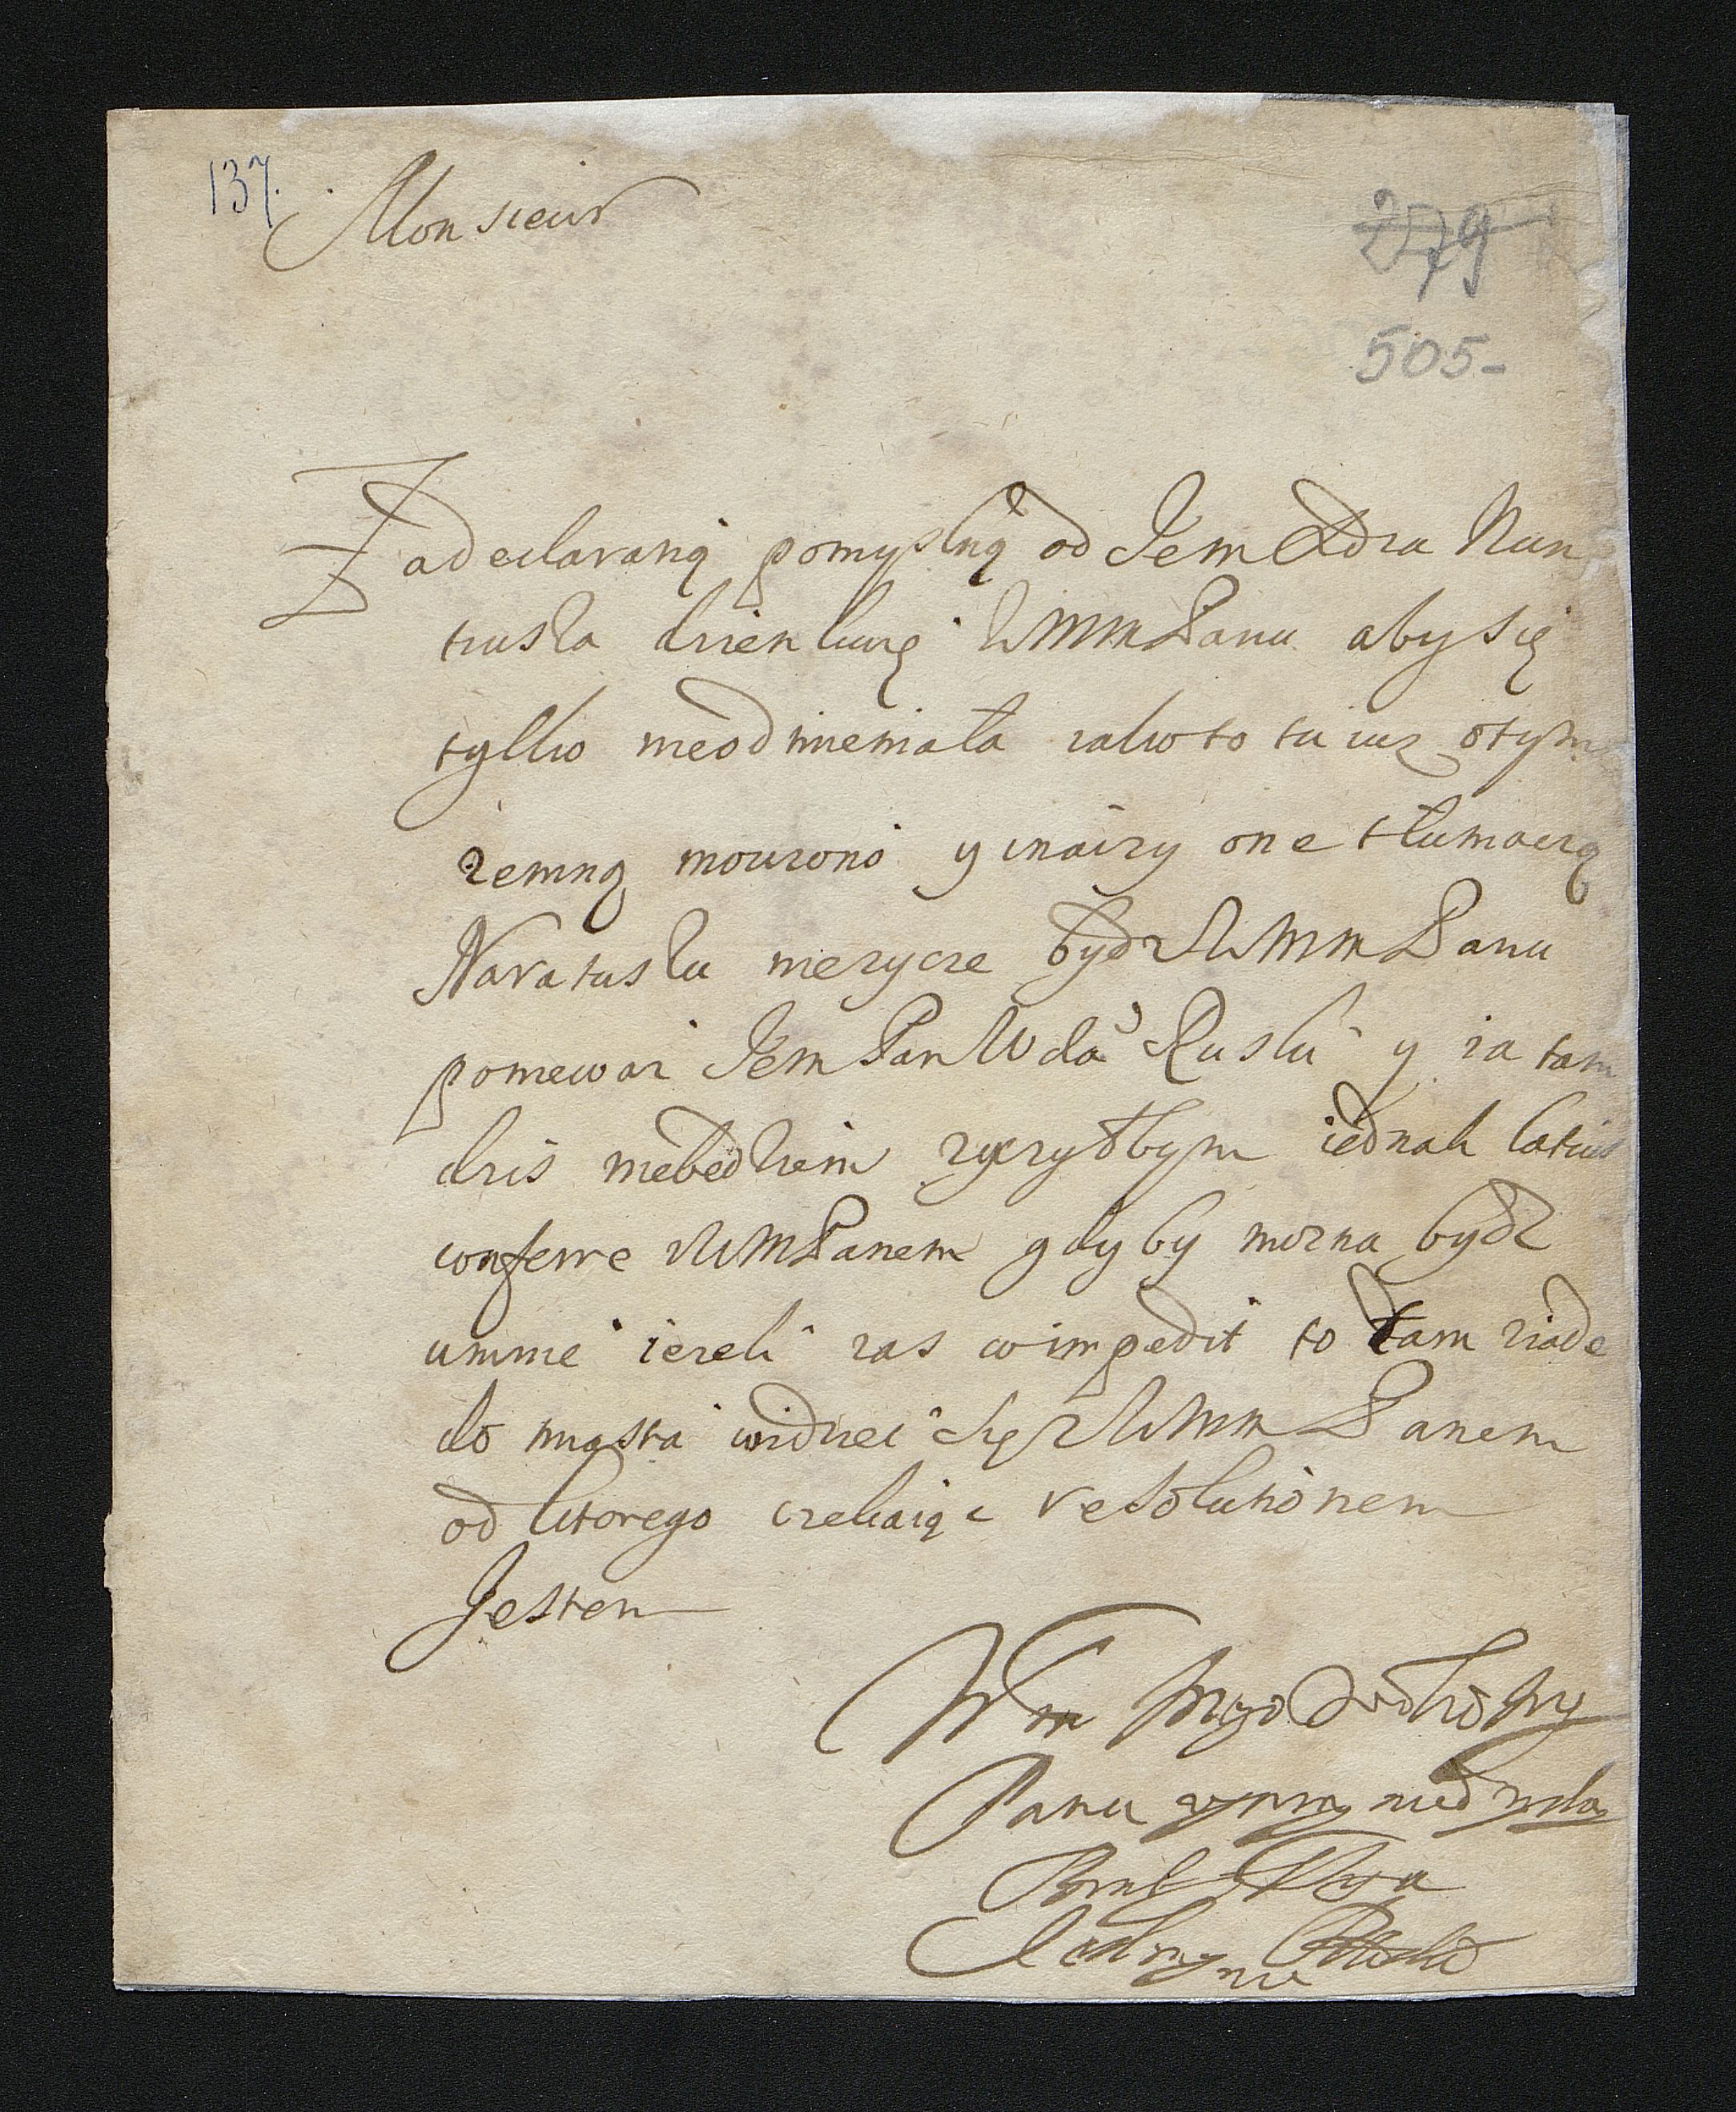 137.
Monsieur
279
505-
Zadeclaraną pomyslną od Jem Xdza Nun
tiusza dziękuię WMMPanu aby się
tylko nieodmieniała iakoto tu iuz otym
zemną mowiono y inaizy one tłumaczą
Naratusku niezycze bydz WMMPanu
poniewaz Jem Pan Wda Ruski y ia tam
dzis niebędziem zyczyłbym iednak latius
conferre zWMPanem gdyby mozna bydz
umnie iezeli zas co impedit to tam ziade
do miasta widziec się zWMM Panem
od ktorego czekaiąc resolutionem
Jestem
Wm
Panu